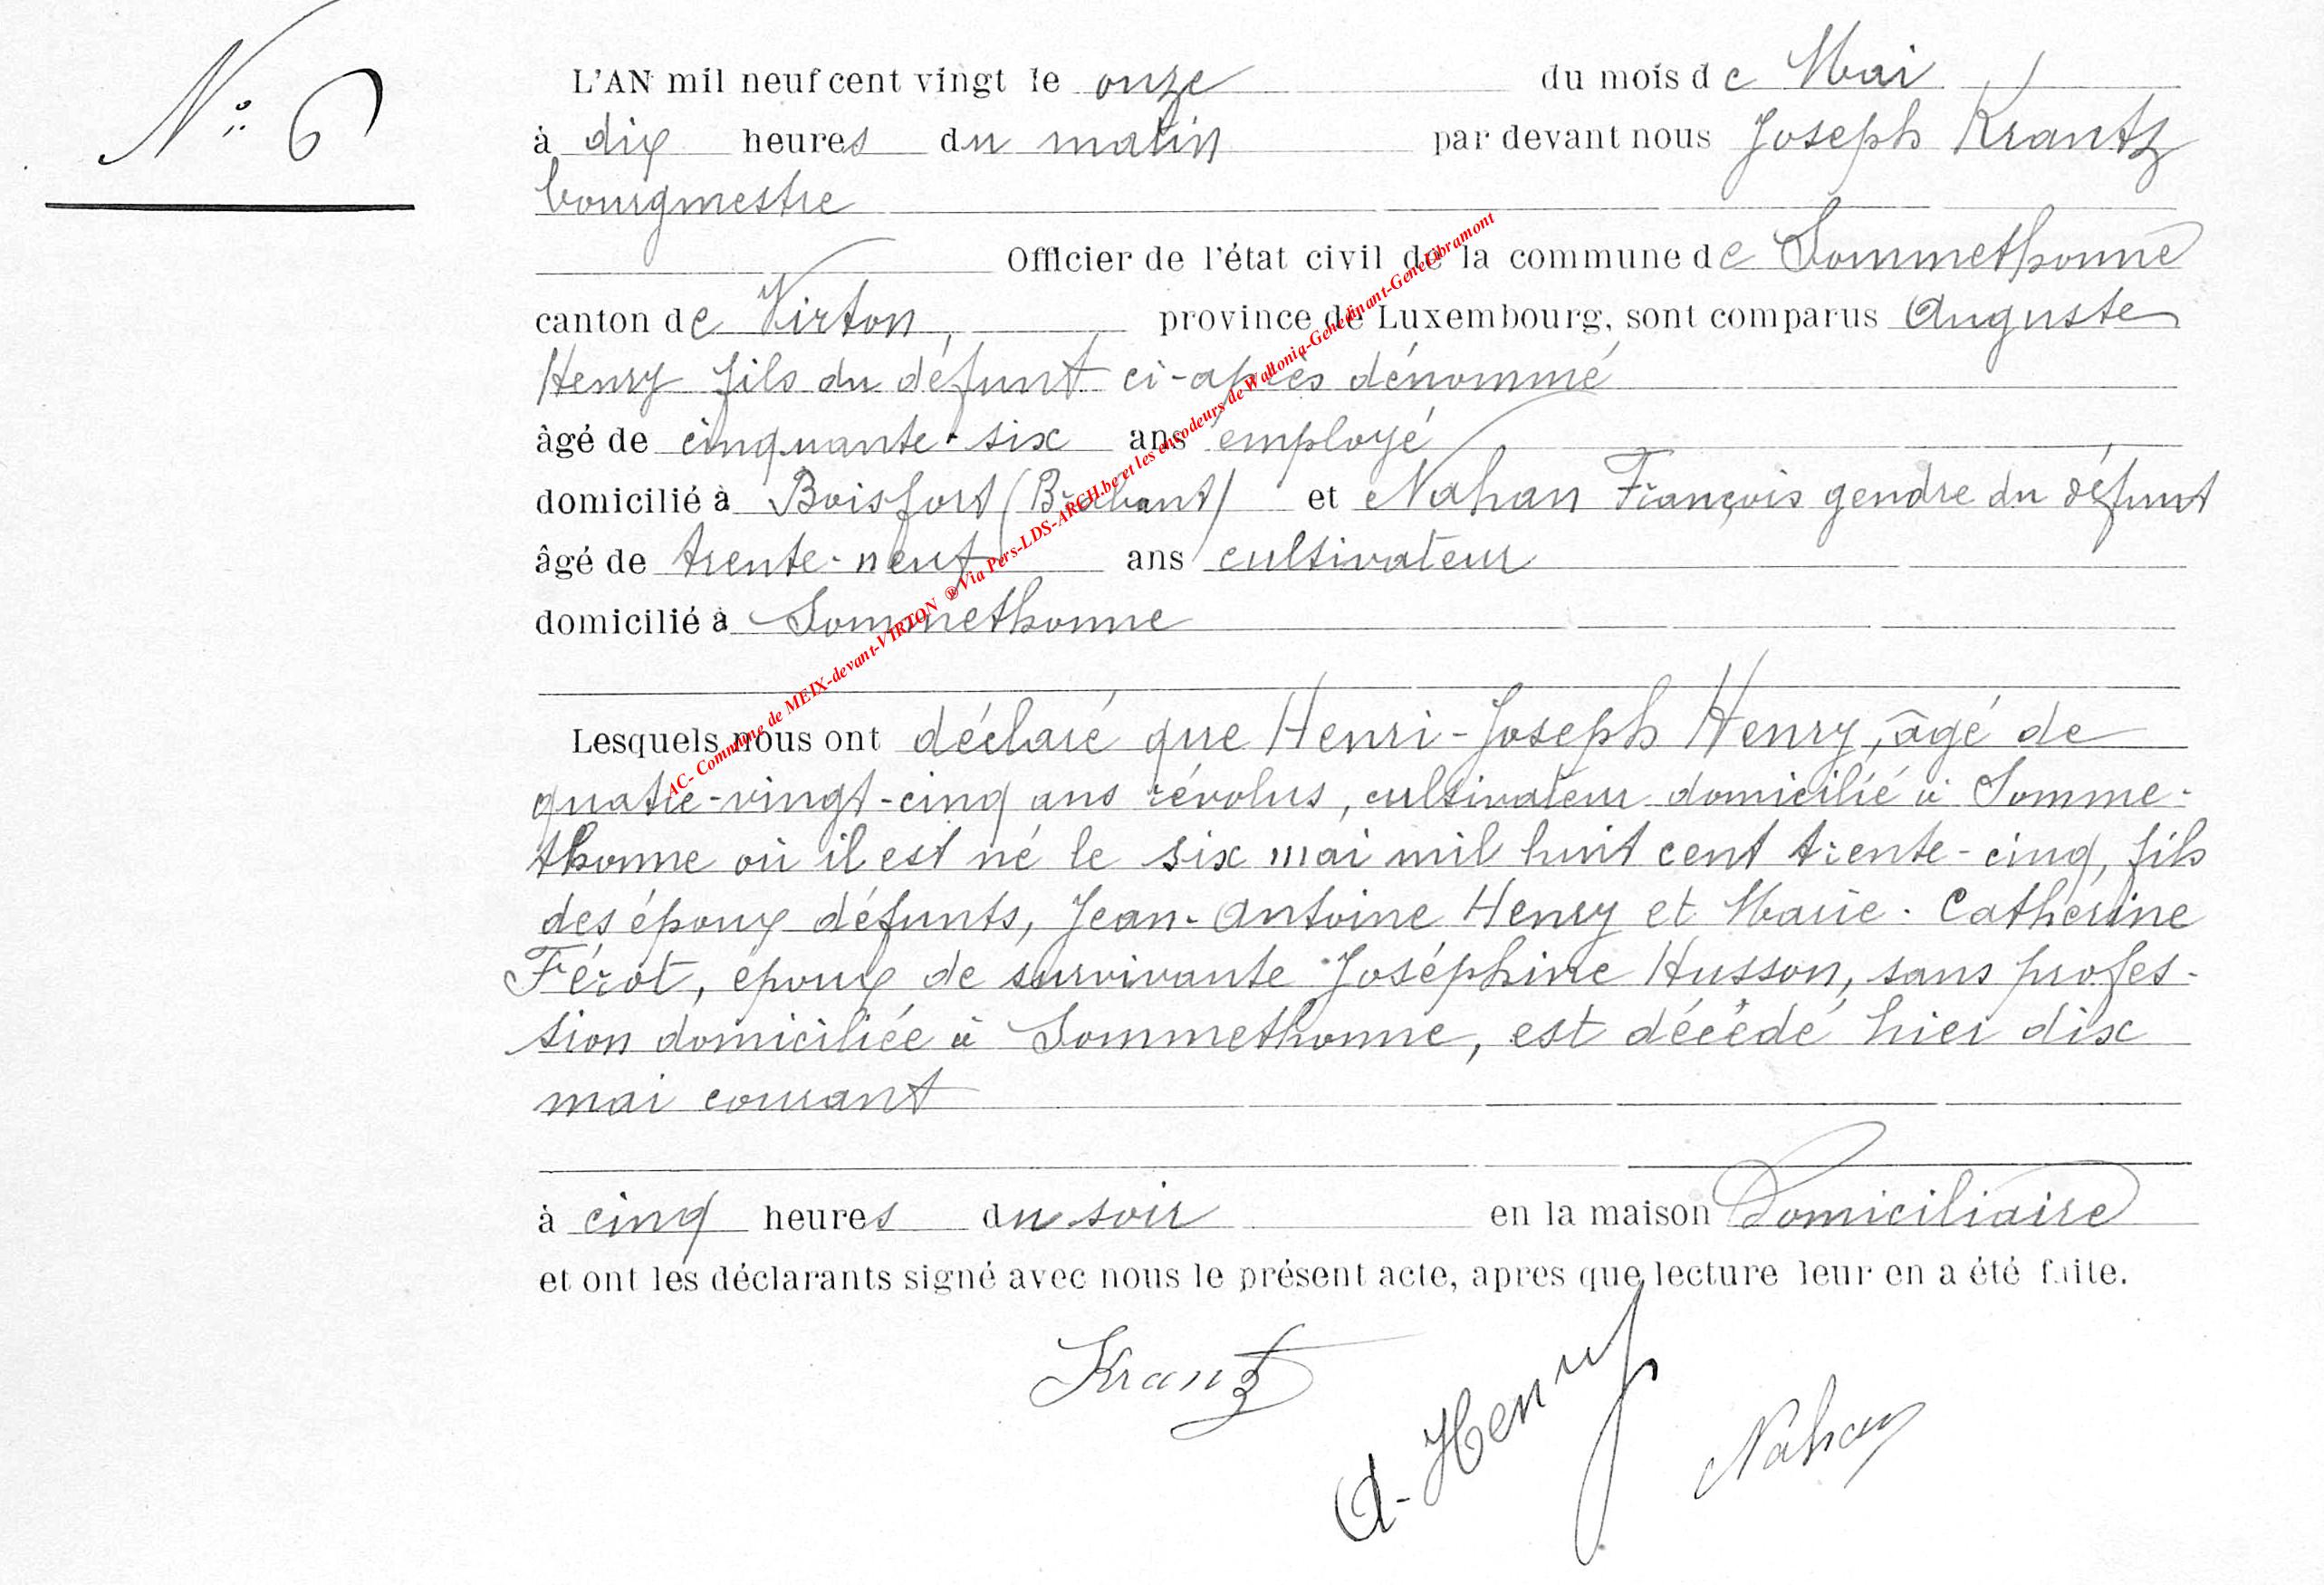 N° 6
L'AN mil neuf cent vingt le onze du mois de Mai
à dix heures du matin par devant nous Joseph Krantz
bourgmestre
Officier de l'état civil de la commune de Sommethonne
canton de Virton, province de Luxembourg, sont comparus Auguste
Henry fils du défunt ci-après dénommé
âgé de cinquante-six ans employé
domicilié à Boisfort (Brabant) et Nahan François gendre du défunt
âgé de trente-neuf ans cultivateur
domicilié à Sommethonne
Lesquels nous ont déclaré que Henri-Joseph Henry, âgé de
quatre-vingt-cinq ans révolus, cultivateur domicilié à Somme-
thonne où il est né le six mai mil huit cent trente-cinq, fils
des époux défunts, Jean-Antoine Henry et Marie-Catherine
Férot, époux de survivante Joséphine Husson, sans profes-
sion domiciliée à Sommethonne, est décédé hier dix
mai courant
à cinq heures du soir en la maison Domiciliaire
et ont les déclarants signé avec nous le présent acte, apres que lecture leur en a été faite.
Krantz
A. Henry
Nahan
AC- Commune de MEIX-devant-VIRTON ® Via Pers-LDS-ARCH.be et les encodeurs de Wallonia-Genedinant-GeneLibramont